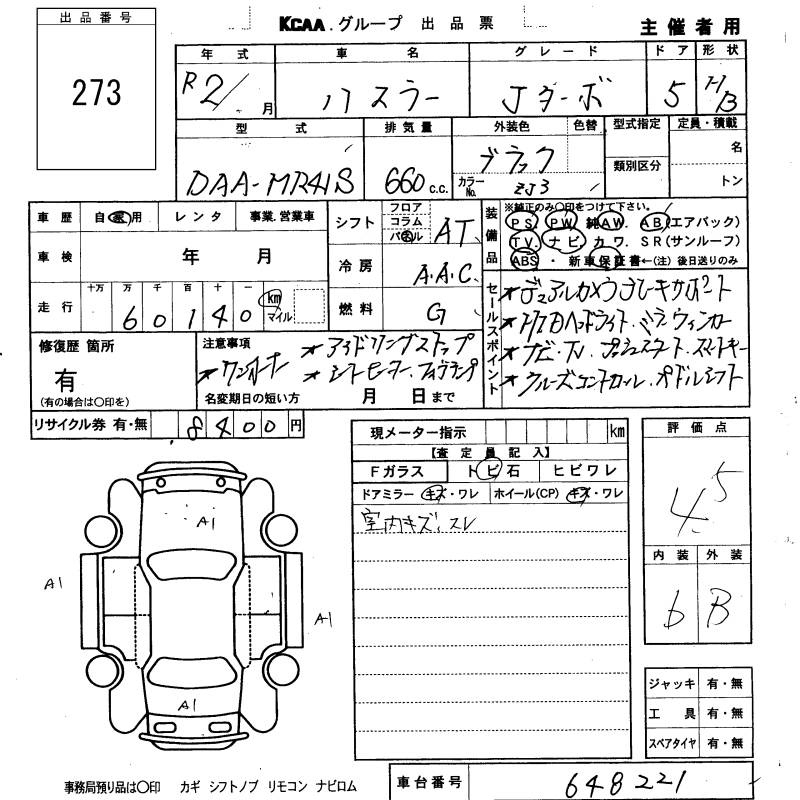 出品番号
273
KCAA.グループ 出品票
主催者用
年式 車名 グレード ドア 形状
R2/ 月 ハスラー Jターボ 5 H/B
型式 排気量 外装色 色替 型式指定 定員・積載
DAA-MR41S 660 c.c. ブラック
カラーNo. ZJ3
類別区分 名
トン
車歴 自家用 レンタ 事業.営業車
車検 年 月
走行 十万 万 千 百 十 一 km マイル
60140
シフト フロア コラム パネル AT
冷房 A.A.C
燃料 G
装備品 ※純正のみ〇印をつけて下さい。
PS. PW 純AW. AB(エアバック)
TV. ナビ. カワ. SR(サンルーフ)
ABS ・ 新車保証書←(注)後日送りのみ
セールスポイント
★デュアルカメラブレーキサポート
★HIDヘッドライト・ミラーウィンカー
★ナビ・TV. プッシュスタート・スマートキー
★クルーズコントロール.パドルシフト
修復歴 箇所
有
(有の場合は〇印を)
注意事項
★アイドリングストップ
★ワンオーナー ★シートヒーター.フォグランプ
名変期日の短い方 月 日まで
リサイクル券 有・無 8400円
現メーター指示 km
【査定員記入】
Fガラス トビ石 ヒビワレ
ドアミラー キズ・ワレ ホイール(CP) キズ・ワレ
室内キズ.スレ
評価点
4.5
内装 外装
b B
A1
A1
A1
A1
ジャッキ 有・無
工具 有・無
スペアタイヤ 有・無
事務局預り品は〇印 カギ シフトノブ リモコン ナビロム
車台番号 648221